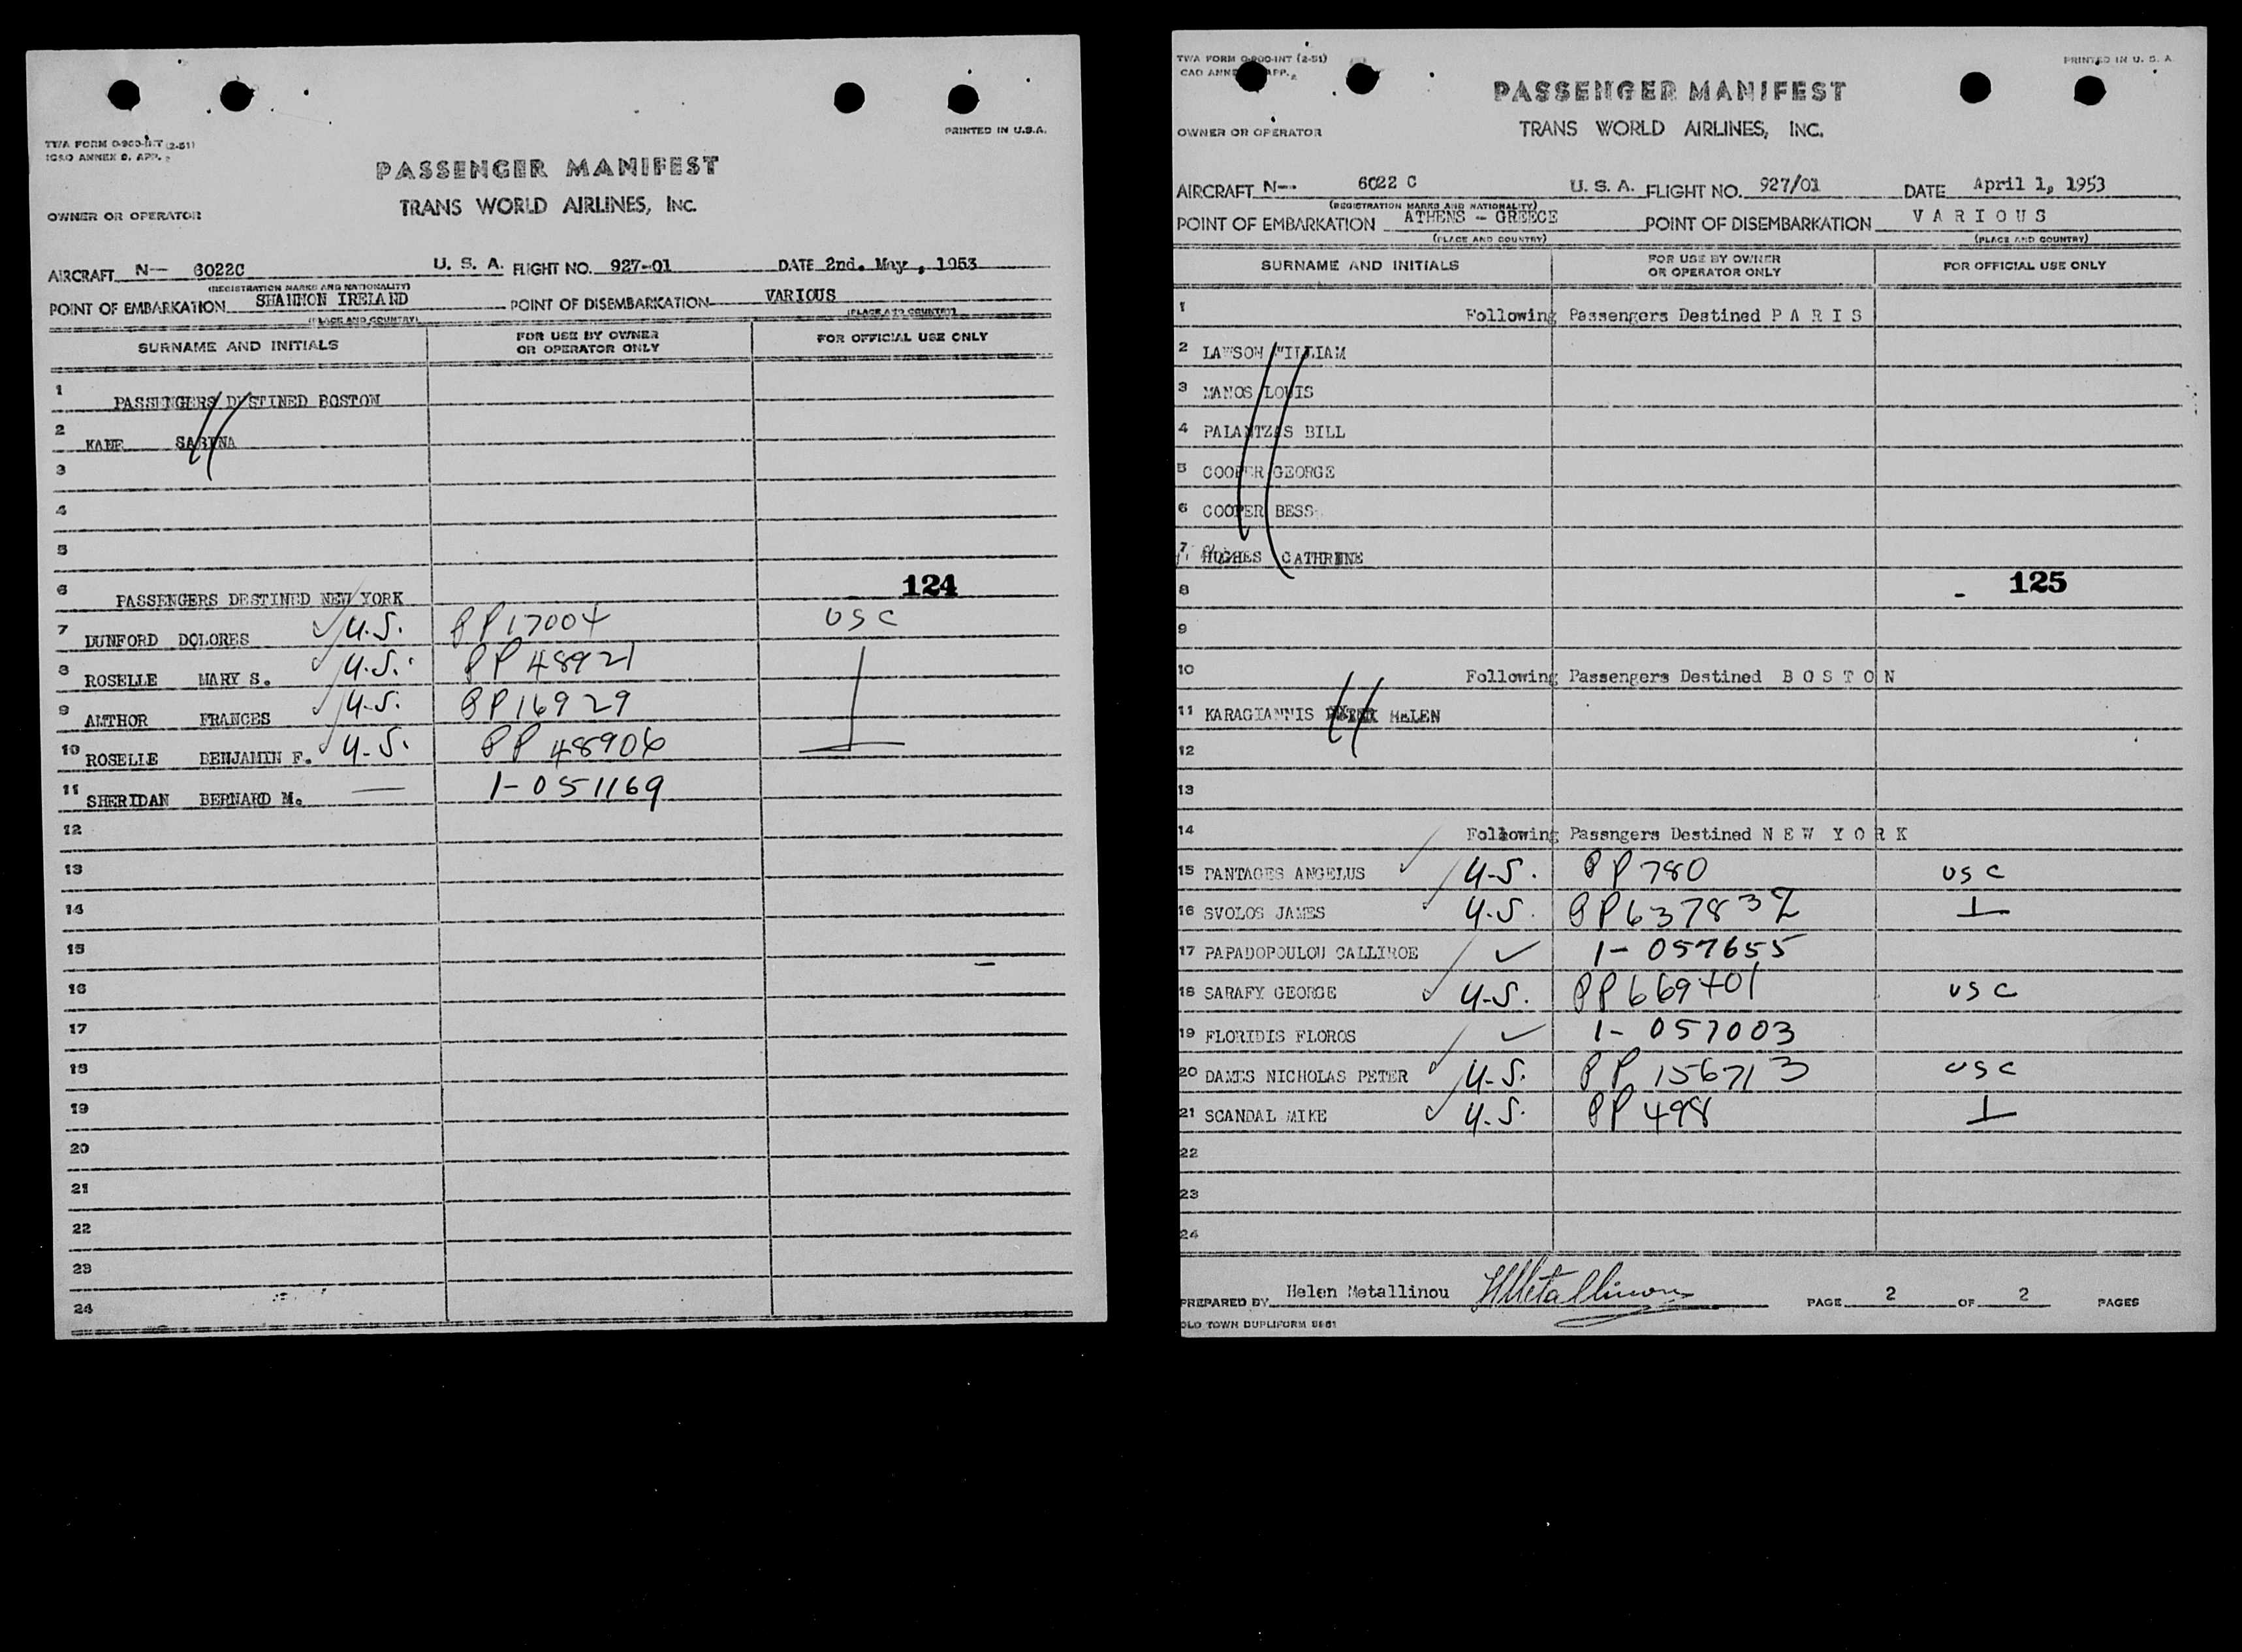 TWA FORM 0-900-INT (2-51)
ICAO ANNEX 9, APP. 2
PRINTED IN U.S.A.
PASSENGER MANIFEST
OWNER OR OPERATOR
TRANS WORLD AIRLINES, INC.
AIRCRAFT N-- 6022C U. S. A. FLIGHT NO. 927-01 DATE 2nd. May , 1953
(REGISTRATION MARKS AND NATIONALITY)
POINT OF EMBARKATION SHANNON IRELAND POINT OF DISEMBARKATION VARIOUS
(PLACE AND COUNTRY) (PLACE AND COUNTRY)
SURNAME AND INITIALS FOR USE BY OWNER OR OPERATOR ONLY FOR OFFICIAL USE ONLY
1 PASSENGERS DESTINED BOSTON
2 KANE SABINA
3
4
5
6 PASSENGERS DESTINED NEW YORK 124
7 DUNFORD DOLORES U.S. PP17004 USC
8 ROSELLE MARY S. U.S. PP 48921
9 AMTHOR FRANCES U.S. PP16929
10 ROSELLE BENJAMIN F. U.S. PP 48906
11 SHERIDAN BERNARD M. — 1-051169
12
13
14
15
16
17
18
19
20
21
22
23
24
TWA FORM 0-900-INT (2-51)
PRINTED IN U. S. A.
PASSENGER MANIFEST
OWNER OR OPERATOR
TRANS WORLD AIRLINES, INC.
AIRCRAFT N-- 6022 C U. S. A. FLIGHT NO. 927/01 DATE April 1, 1953
(REGISTRATION MARKS AND NATIONALITY)
POINT OF EMBARKATION ATHENS - GREECE POINT OF DISEMBARKATION V A R I O U S
(PLACE AND COUNTRY) (PLACE AND COUNTRY)
SURNAME AND INITIALS FOR USE BY OWNER OR OPERATOR ONLY FOR OFFICIAL USE ONLY
1 Following Passengers Destined P A R I S
2 LAWSON WILLIAM
3 MANOS LOUIS
4 PALANTZAS BILL
5 COOPER GEORGE
6 COOPER BESS
7 HUGHES CATHRINE
8 125
9
10 Following Passengers Destined B O S T O N
11 KARAGIANNIS HELEN
12
13
14 Following Passngers Destined N E W Y O R K
15 PANTAGES ANGELUS U.S. PP 780 USC
16 SVOLOS JAMES U.S. PP637832
17 PAPADOPOULOU CALLIROE 1- 057655
18 SARAFY GEORGE U.S. PP669701 USC
19 FLORIDIS FLOROS 1- 057003
20 DAMES NICHOLAS PETER U.S. PP 156713 USC
21 SCANDAL MIKE U.S. PP 498
22
23
24
PREPARED BY Helen Metallinou HMetallinou PAGE 2 OF 2 PAGES
OLD TOWN DUPLIFORM 8861